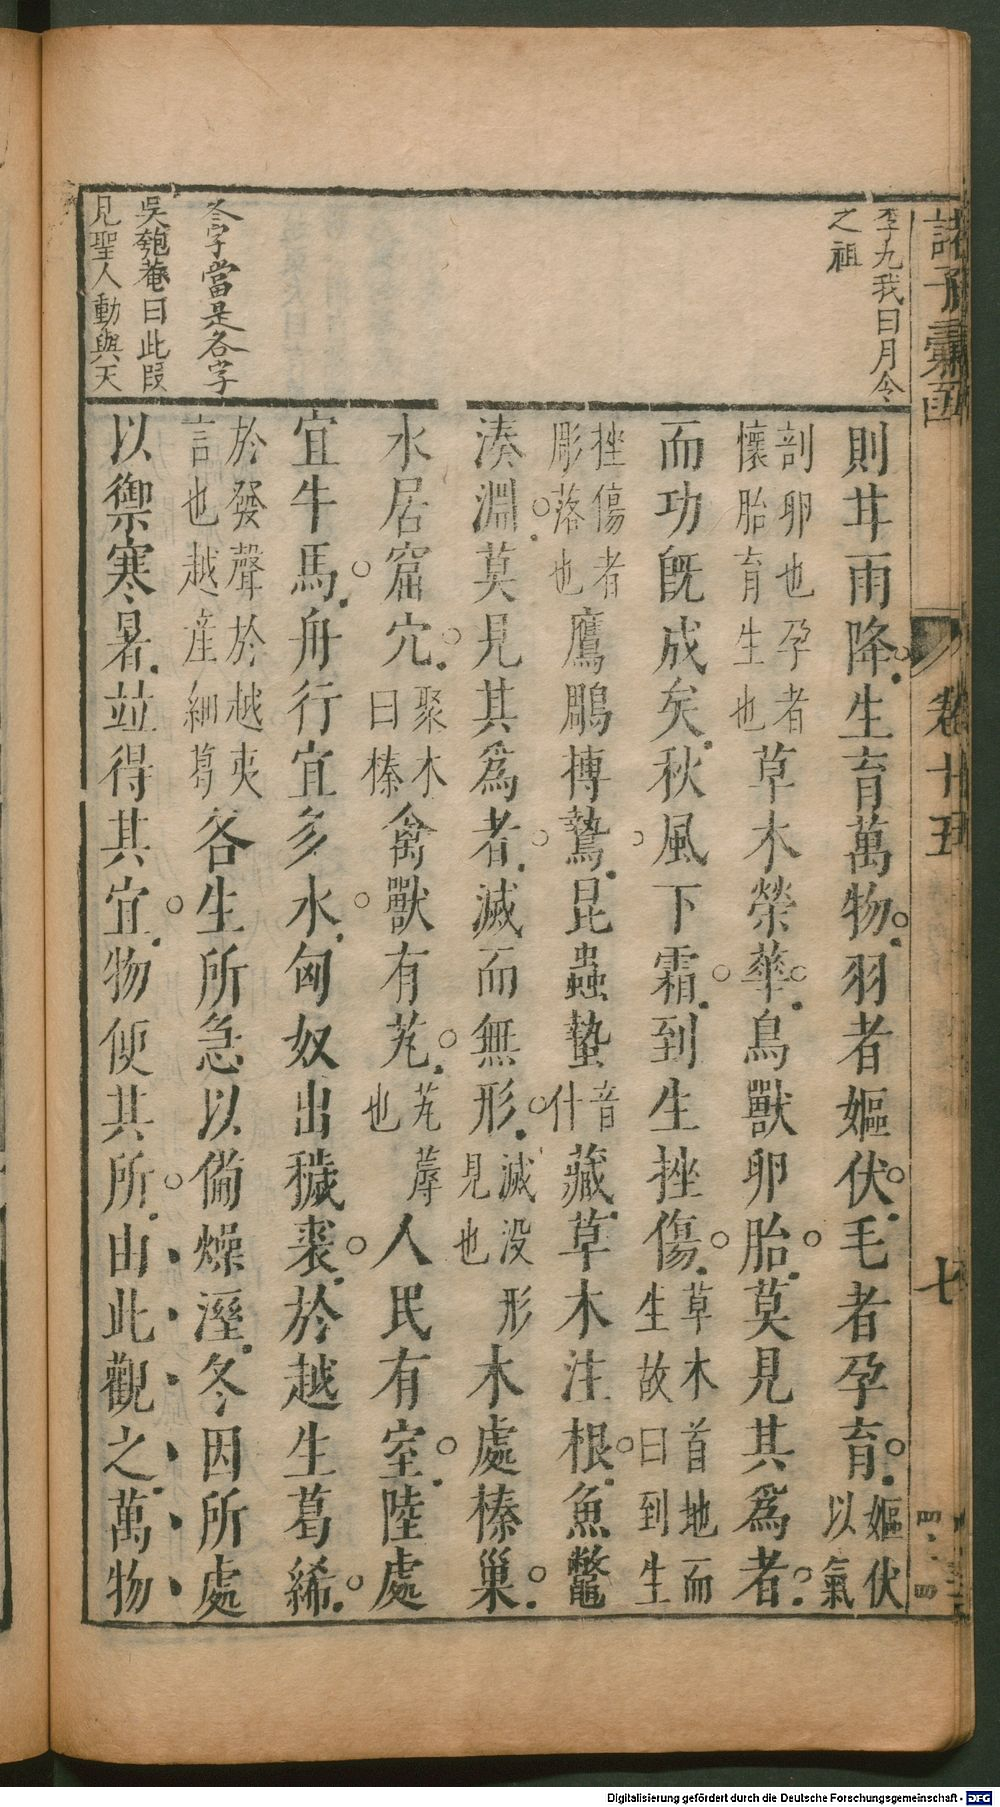 諸子彙函
卷十五
七
李九我曰月令
之祖
冬字當是各字
吳匏菴曰此段
見聖人動與天
則甘雨降生育萬物羽者嫗伏毛者孕育嫗伏以氣
剖卵也孕者懷胎育生也草木榮華鳥獸卵胎莫見其爲者
而功旣成矣秋風下霜到生挫傷草木首地而生故曰到生
挫傷者彫落也鷹鵰搏鷙昆蟲蟄音什藏草木注根魚鼈
湊淵莫見其爲者滅而無形滅没形見也木處榛巢
水居窟穴聚木曰榛禽獸有艽艽蓐也人民有室陸處
宜牛馬舟行宜多水匈奴出穢裘於越生葛絺
於發聲於越夷言也越産細葛各生所急以備燥溼冬因所處
以禦寒暑竝得其宜物便其所由此觀之萬物
Digitalisierung gefördert durch die Deutsche Forschungsgemeinschaft - DFG